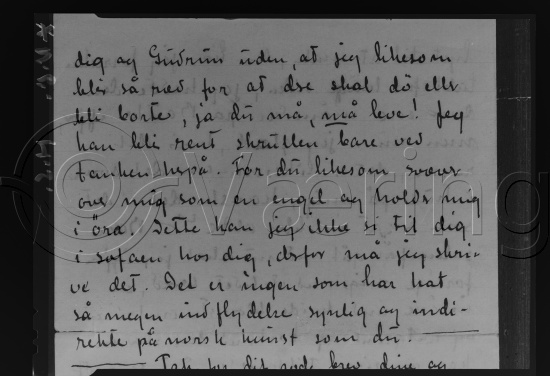 dig og Gudrun uden, at jeg likesom
blir så ræd for at dse skal dö ellr
bli borte, ja du må, må leve! Jeg
kan bli rent skrullen bare ved
tanken herpå. For du likesom svæver
over mig som en engel og holdr mig
i öra. Dette kan jeg ikke si til dig
i sofaen hos dig, drfor må jeg skri-
ve det. Det er ingen som har hat
så megen indflydelse synlig og indi-
rekte på norsk kunst som du.
Tak for dit gode brev, dine og
© Væring